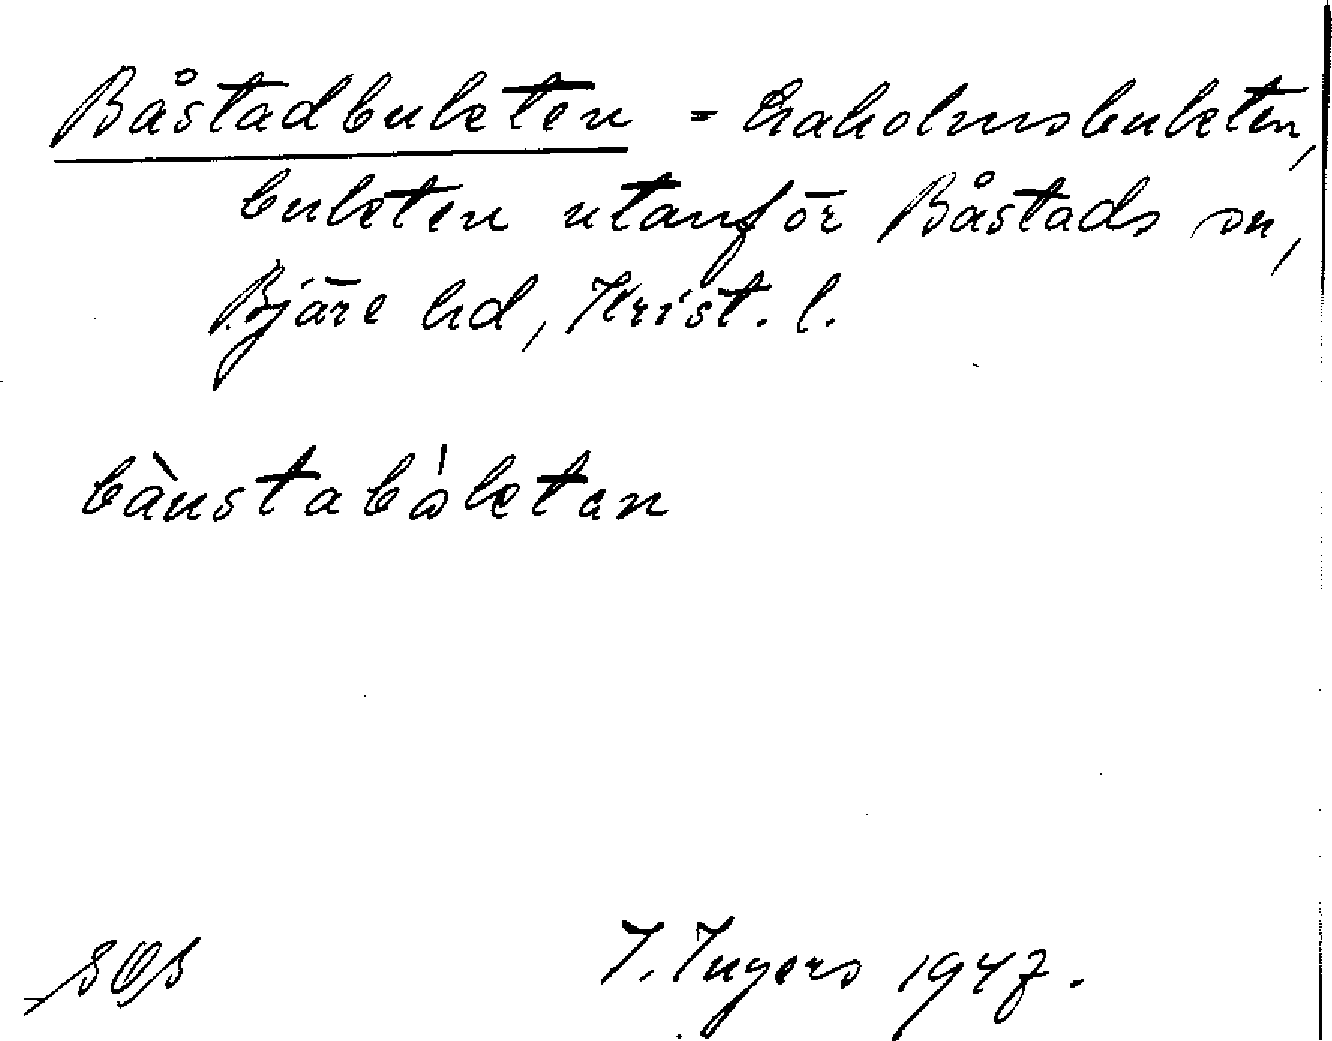 Båstadbukten = Laholmsbukten,
bukten utanför Båstads sn,
Bjäre hd, Krist. l.
bàustabω̍ktan
I. Ingers 1947.